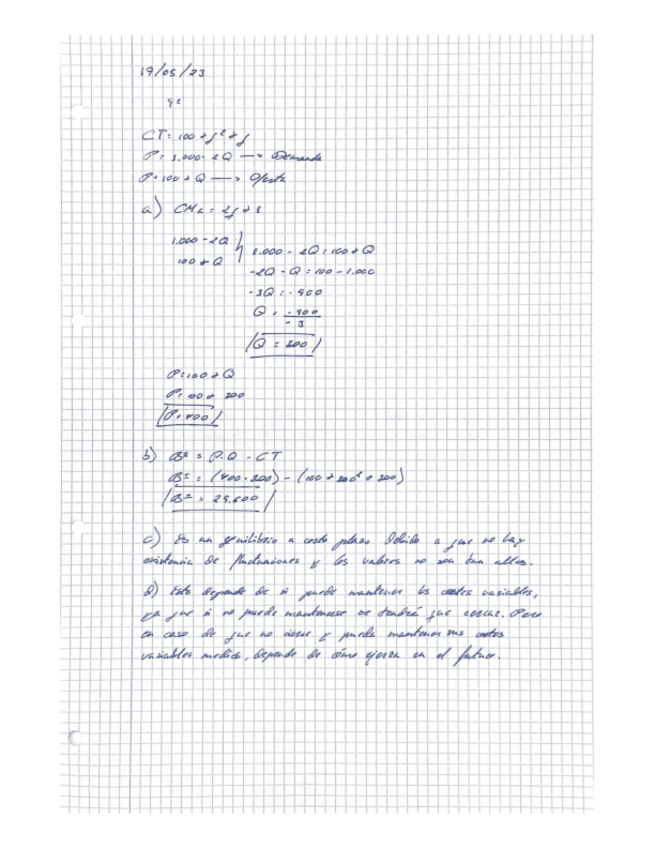 19/05/23
CT = 100 + q² + q
P = 1.000 - 2Q → Demanda
P = 100 + Q → Oferta
a) CMa = 2q + 1
1.000 - 2Q
100 + Q
1.000 - 2Q = 100 + Q
-2Q - Q = 100 - 1.000
-3Q = -900
Q = -900
-3
Q = 300
P = 100 + Q
P = 100 + 300
P = 400
b) Bº = P.Q - CT
Bº = (400 · 300) - (100 + 300² + 300)
Bº = 29.600
c) Es un equilibrio a corto plazo debido a que no hay
existencia de fluctuaciones y los valores no son tan altos.
d) Esto depende de si puede mantener los costes variables,
ya que si no puede mantenerse se tendrá que cerrar. Pero
en caso de que no cierre y pueda mantener sus costes
variables medios, depende de cómo ejerza en el futuro.